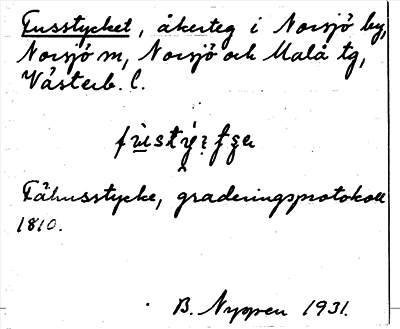 Fusstycket, åkerteg i Norsjö by,
Norsjö m, Norsjö och Malå tg,
Västerb. l.
Fähusstycke, graderingsprotokoll
1810.
B. Nyppen 1931.